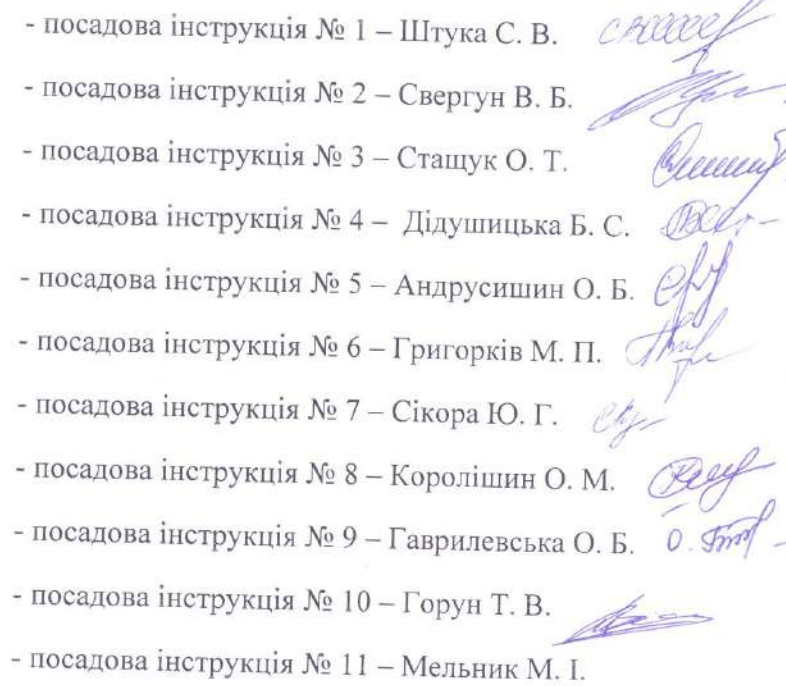 - посадова інструкція № 1 – Штука С. В.
- посадова інструкція № 2 – Свергун В. Б.
- посадова інструкція № 3 – Стащук О. Т.
- посадова інструкція № 4 – Дідушицька Б. С.
- посадова інструкція № 5 – Андрусишин О. Б.
- посадова інструкція № 6 – Григорків М. П.
- посадова інструкція № 7 – Сікора Ю. Г.
- посадова інструкція № 8 – Королішин О. М.
- посадова інструкція № 9 – Гаврилевська О. Б.
- посадова інструкція № 10 – Горун Т. В.
- посадова інструкція № 11 – Мельник М. І.